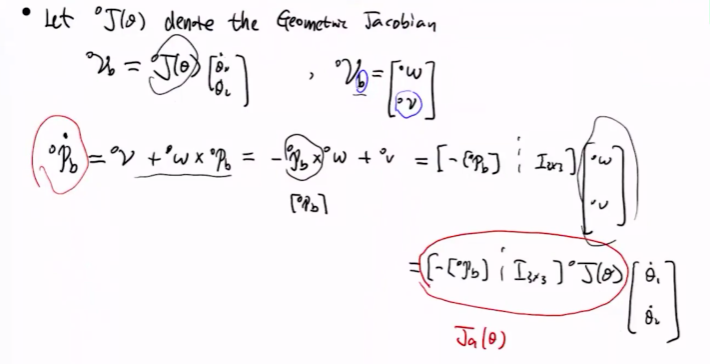 • Let ⁰J(θ) denote the Geometric Jacobian
⁰𝒱_b = ⁰J(θ) [θ̇₁ θ̇₂] , ⁰𝒱_b = [⁰ω ⁰v]
⁰ṗ_b = ⁰v + ⁰ω × ⁰p_b = - ⁰p_b × ⁰ω + ⁰v = [-[⁰p_b] ⋮ I₃ₓ₃] [⁰ω ⁰v]
[⁰p_b]
= [-[⁰p_b] ⋮ I₃ₓ₃] ⁰J(θ) [θ̇₁ θ̇₂]
Ja(θ)